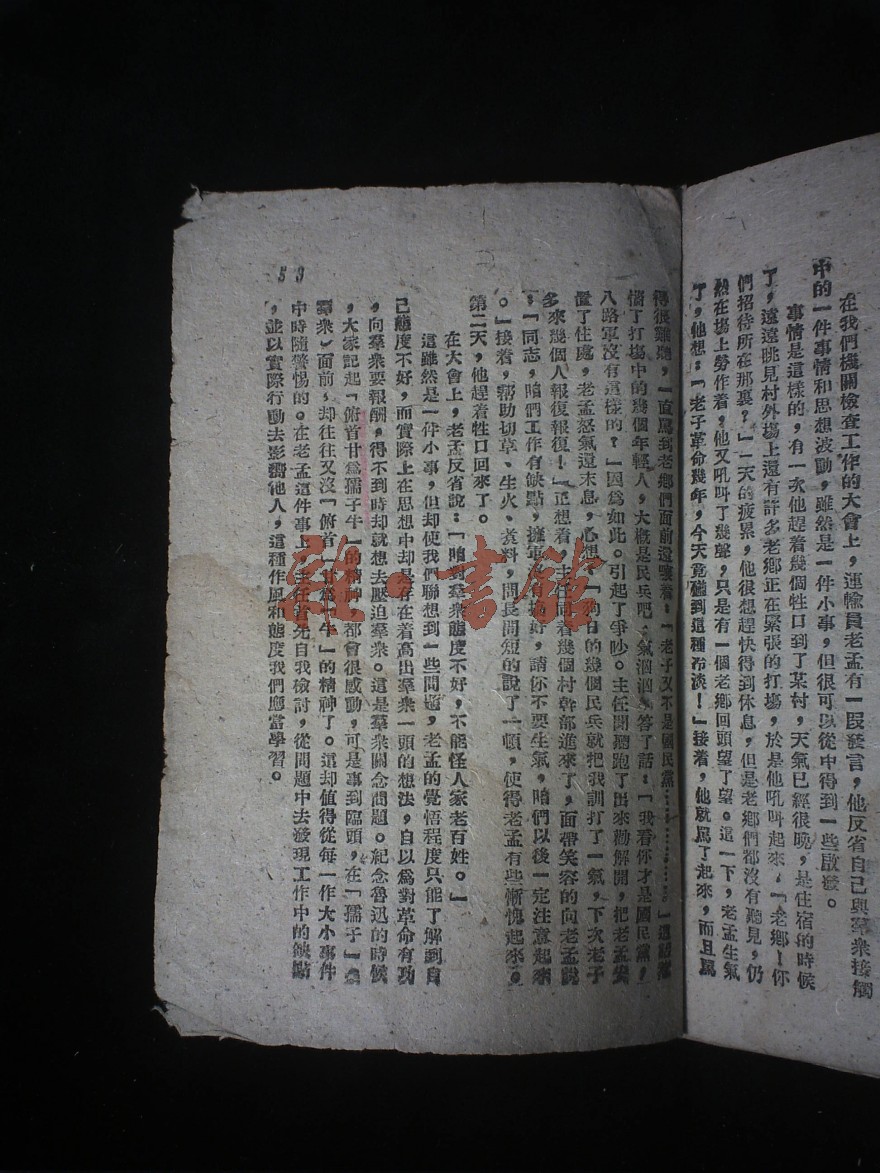 在我們機關檢查工作的大會上，運輸員老孟有一段發言，他反省自己與羣衆接觸
中的一件事情和思想波動，雖然是一件小事，但很可以從中得到一些啟發。
事情是這樣的，有一次他趕着幾個牲口到了某村，天氣已經很晚，是住宿的時候
了，遠遠眺見村外場上還有許多老鄉正在緊張的打場，於是他吼叫起來，「老鄉！你
們招待所在那裏？」一天的疲累，他很想趕快得到休息，但是老鄉們都沒有聽見，仍
然在場上勞作着，他又吼叫了幾聲，只是有一個老鄉回頭望了望。這一下，老孟生氣
了，他想：「老子革命幾年，今天竟碰到這種冷淡！」接着，他就罵了起來，而且罵
得很難聽，一直罵到老鄉們面前還嚷着：「老子又不是國民黨…………。」這話
惱了打場中的幾個年輕人，大概是民兵吧，氣汹汹答了話：「我看你才是國民黨，
八路軍沒有這樣的？」因爲如此。引起了爭吵。主任聞聽跑了出來勸解開，把老孟安
置了住處，老孟怒氣還未息，心想：「狗日的幾個民兵就把我訓打了一氣，下次老子
多來幾個人報復報復！」正想着，主任同着幾個村幹部進來了，面帶笑容的向老孟說
：「同志，咱們工作有缺點，擁軍沒有搞好，請你不要生氣，咱們以後一定注意起來
。」接着，幫助切草、生火、煮料，問長問短的說了一頓，使得老孟有些慚愧起來。
第二天，他趕着牲口回來了。
在大會上，老孟反省說：「咱對羣衆態度不好，不能怪人家老百姓。」
這雖然是一件小事，但却使我們聯想到一些問題，老孟的覺悟程度只能了解到自
己態度不好，而實際上在思想中却是存在着高出羣衆一頭的想法，自以爲對革命有功
，向羣衆要報酬，得不到時却就想去壓迫羣衆。這是羣衆關念問題。紀念魯迅的時候
，大家記起「俯首甘爲孺子牛」的精神，都會很感動，可是事到臨頭，在「孺子」（
羣衆）面前，却往往又沒「俯首」「甘爲牛」的精神了。這却值得從每一件大小事件
中時隨警惕的。在老孟這件事上，主任首先自我檢討，從問題中去發現工作中的缺點
，並以實際行動去影響他人，這種作風和態度我們應當學習。
53